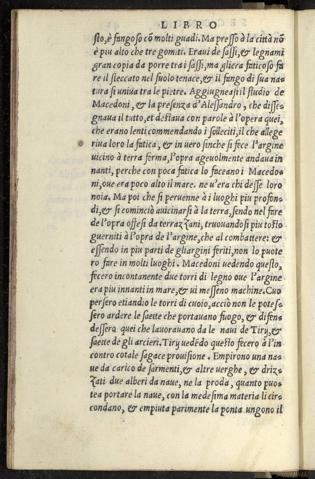 LIBRO
sto, è fangoso cõ molti guadi. Ma presso à la città nõ
è piu alto che tre gomiti. Eraui de sassi, & legnami
gran copia da porre tra i sassi, ma gliera faticoso fa
re il steccato nel suolo tenace, & il fango di sua na=
tura si uniua tra le pietre. Aggiugneasi il studio de
Macedoni, & la presenza d'Alessandro, che disse=
gnaua il tutto, et destaua con parole à l'opra quei,
che erano lenti commendando i solleciti, il che allege
riua loro la fatica, & in uero sinche si fece l'argine
uicino à terra ferma, l'opra ageuolmente andaua in
nanti, perche con poca fatica lo faceano i Macedo=
ni, oue era poco alto il mare. ne u'era chi desse loro
noia. Ma poi che si peruenne à i luoghi piu profon=
di, & si cominciò auicinarsi à la terra, sendo nel fare
de l'opra offesi da terrazzani, truouandosi piu tosto
guerniti à l'opra de l'argine, che al combattere: &
essendo in piu parti de gliargini feriti, non lo puote
ro fare in molti luoghi. Macedoni uedendo questo,
fecero incontanente due torri di legno oue l'argine
era piu innanti in mare, & ui messeno machine. Cuo
persero etiandio le torri di cuoio, acciò non le potes=
sero ardere le saette che portauano fuogo, & difen=
dessero quei che lauorauano da le naui de Tiry, &
saette de gli arcieri. Tiry uedẽdo questo fecero à l'in
contro cotale sagace prouisione. Empirono una na=
ue da carico de sarmenti, & altre uerghe, & driz=
zati due alberi da naue, ne la proda, quanto puo=
tea portare la naue, con la medesima materia li cir=
condano, & empiuta parimente la ponta ungono il